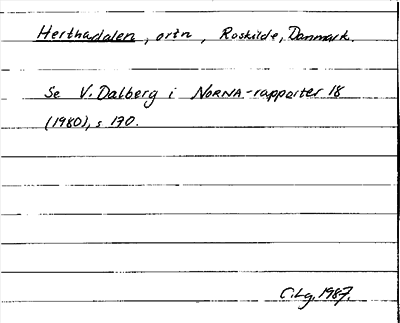 Herthadalen, ortn, Roskilde, Danmark.
Se V. Dalberg i NORNA-rapporter 18
(1980), s 170.
C.Lg. 1987.